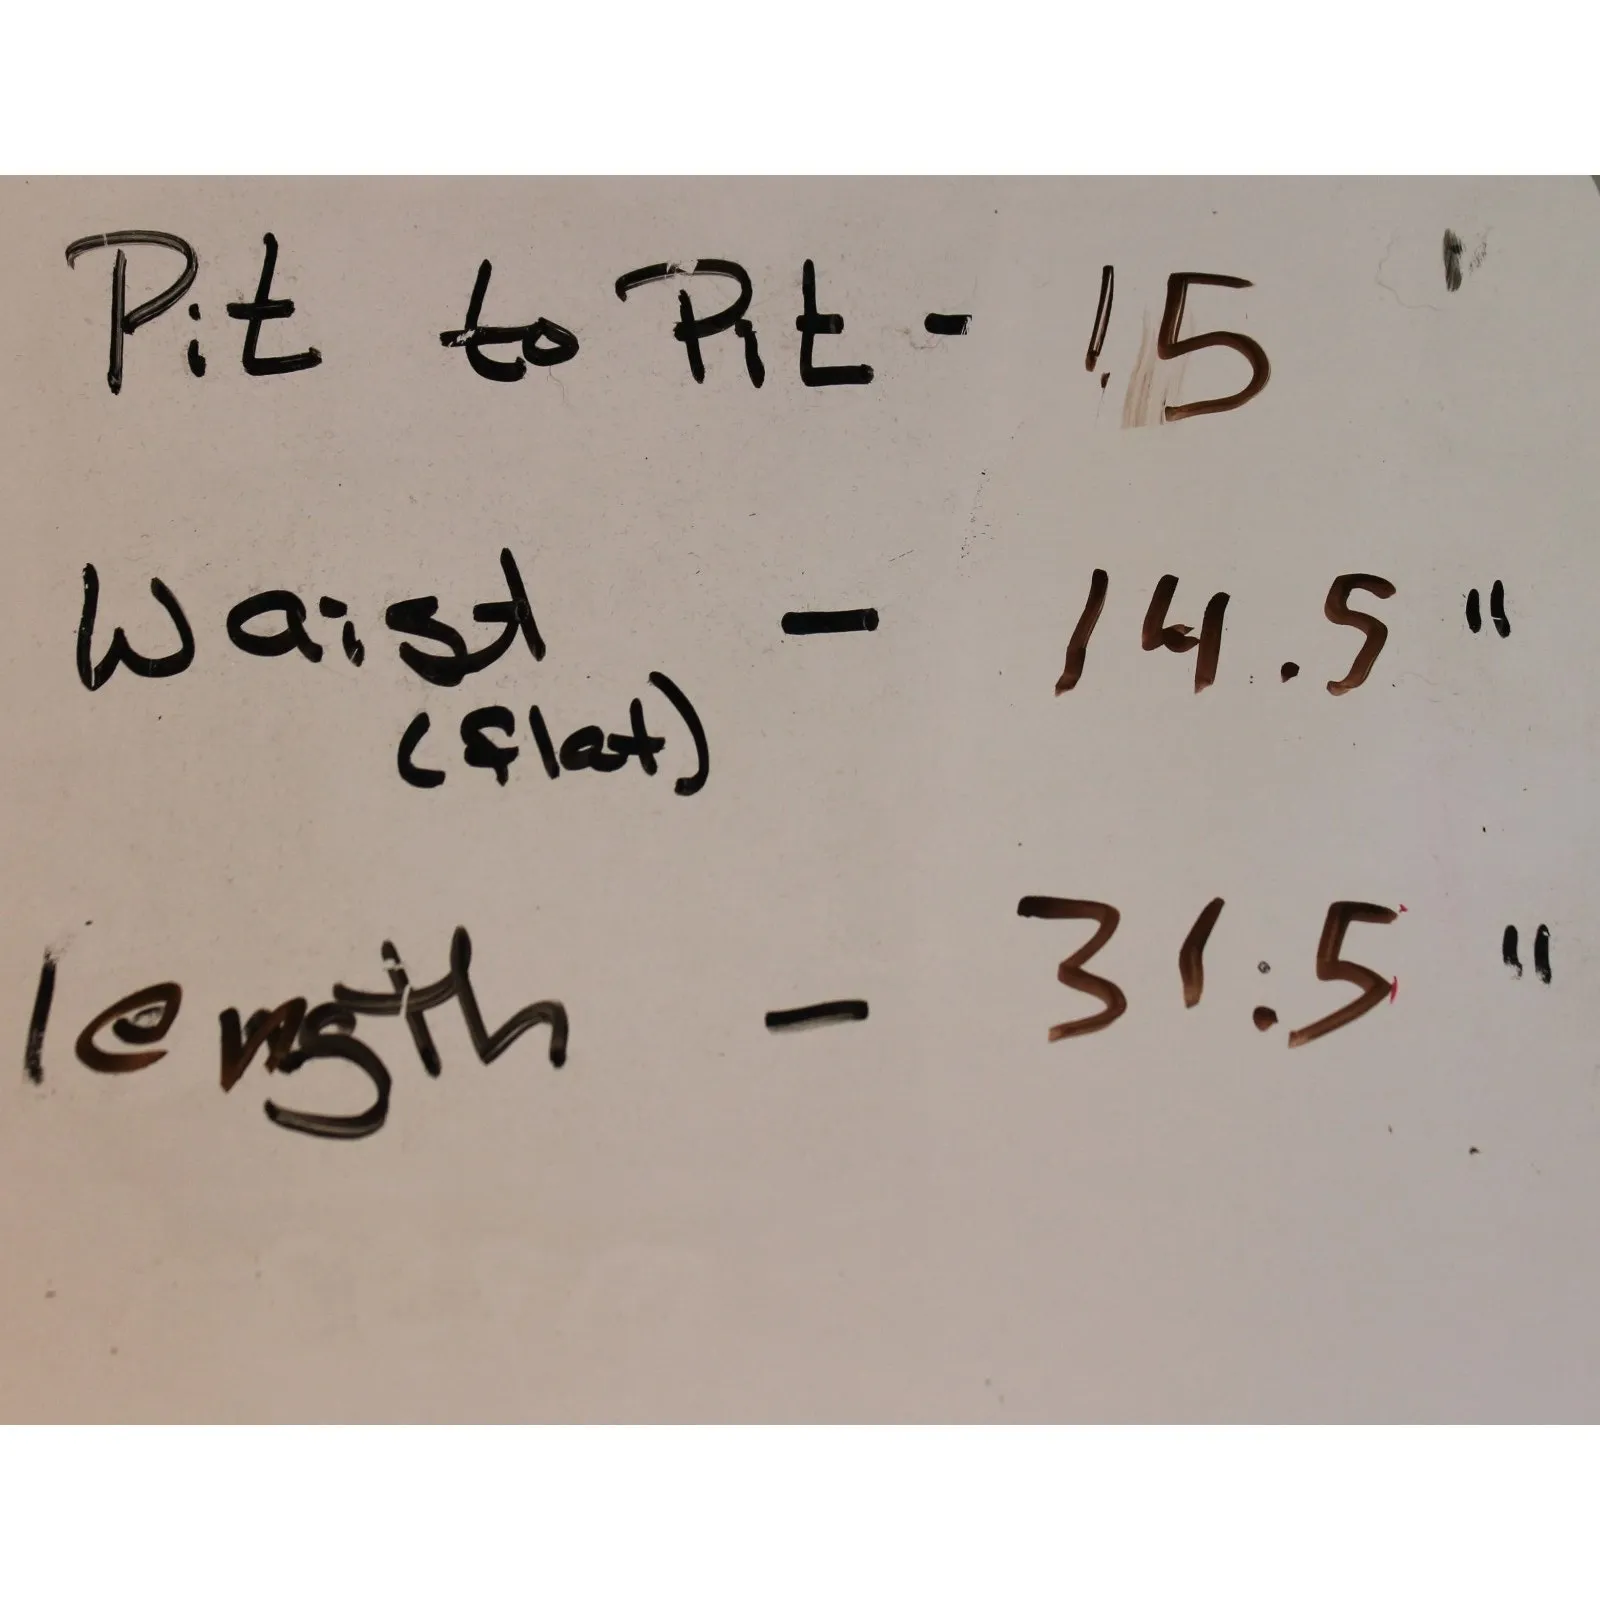 Pit to Pit - 15 "
Waist - 14.5 "
(flat)
length - 31.5 "